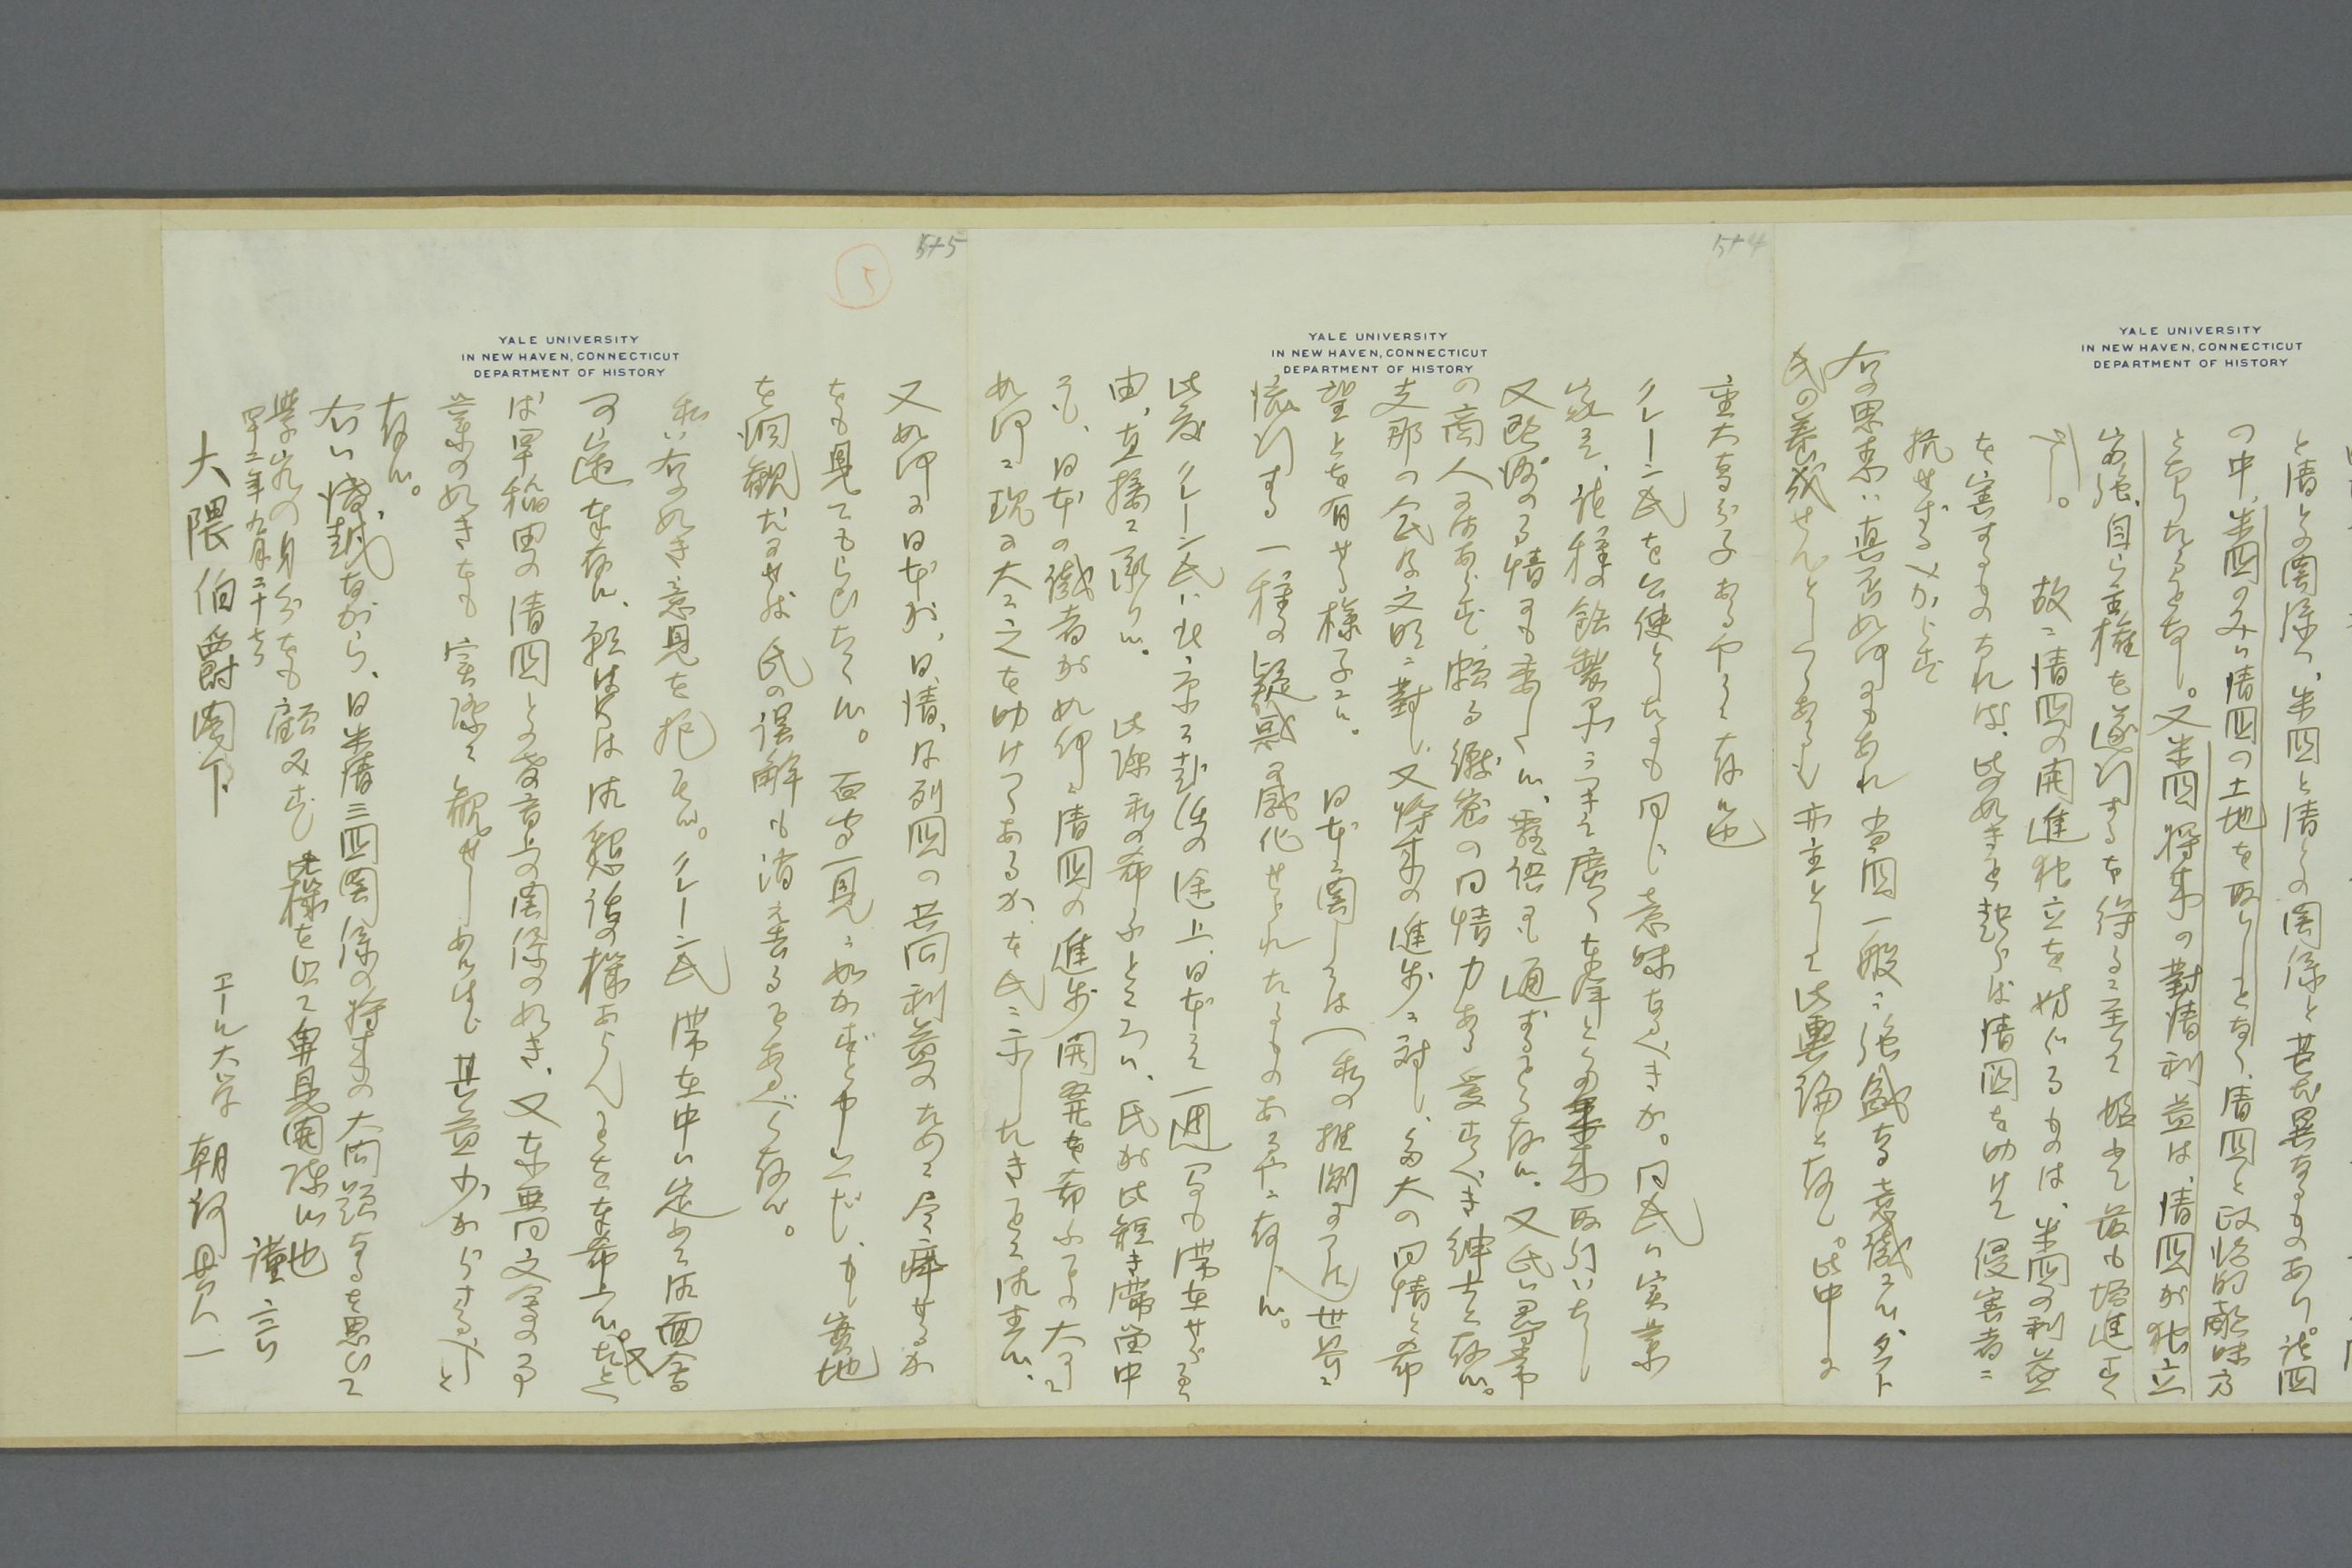 YALE UNIVERSITY
IN NEW HAVEN, CONNECTICUT
DEPARTMENT OF HISTORY
と清との関係は、米国と清との関係と甚だ異なるものあり。諸国
の中、米国のみハ清国の土地を取りしことなく、清国と政治的敵味方
となりたることなし。又米国将来の対清利益は、清国が独立
富強、自ら主権を遂行するを得るに至て始めて最も増進す
べし。 故ニ清国の開進独立を妨ぐるものは、米国の利益
を害するものなれば、此の如きこと起らば清国を助けて侵害者ニ
抗せざるべからず
右の思想ハ真否如何にもあれ当国一般ニ強盛なる意識にて、タフト
氏の養成せんとしつつあるも亦主として此輿論と存じ。此中に
YALE UNIVERSITY
IN NEW HAVEN, CONNECTICUT
DEPARTMENT OF HISTORY
5+4
重大なる分子あるやに存候
クレーン氏を公使としたるも同じ意味なるべきか。同氏ハ実業
家にて、諸種の鉄製品につきて広く東洋との取引いたし
又政治の事情にも委しく、露語にも通ずることと存候。又氏ハ尋常
の商人にはあらず、頗る緻密の同情力ある愛すべき紳士と存候。
支那の人民及文明ニ対し、又将来の進歩ニ対し、多大の同情と希
望とを有せる様子ニ候。 日本ニ関しては(私の推測にては)世界ニ
流行する一種の疑惑に感化せられたるものあるやニ存じ候。
此度クレーン氏ハ北京に赴任の途上、日本にて一週間も滞在せらるる
由、直接に承り候。 此際私の希ふところハ、氏が此短き滞留中
にも、日本の識者が如何ニ清国の進歩開発を希ふことの大に
如何ニ現に大に之を助けつつあるか、を氏ニ示したきことに御座候、
YALE UNIVERSITY
IN NEW HAVEN, CONNECTICUT
DEPARTMENT OF HISTORY
5+5
5
又如何に日本が、日、清、及列国の共同利益のために尽瘁せるか
をも見てもらひたく候。 百聞一見ニ如かずと申し候へば、もし実地
を洞観なさせば氏の誤解も消え去ることあるべく存候。
私ハ右の如き意見を抱き候。クレーン氏滞在中ハ定めて御面会
可遊と存候、願はくは御懇談の様あらんことを希上候。たとへ
ば早稲田の清国との教育上の関係の如き、又東亜同文会の事
業の如きをも実際に観せしめなば其益少からざるべしと
存候。
右ハ僭越ながら、日米清三国関係の将来の大問題なるを思ひて
学究の身分をも顧みず 此様を以て卑見開陳候也
謹言
四十二年九月二十七日
エール大学 朝河貫一
大隈伯爵閣下